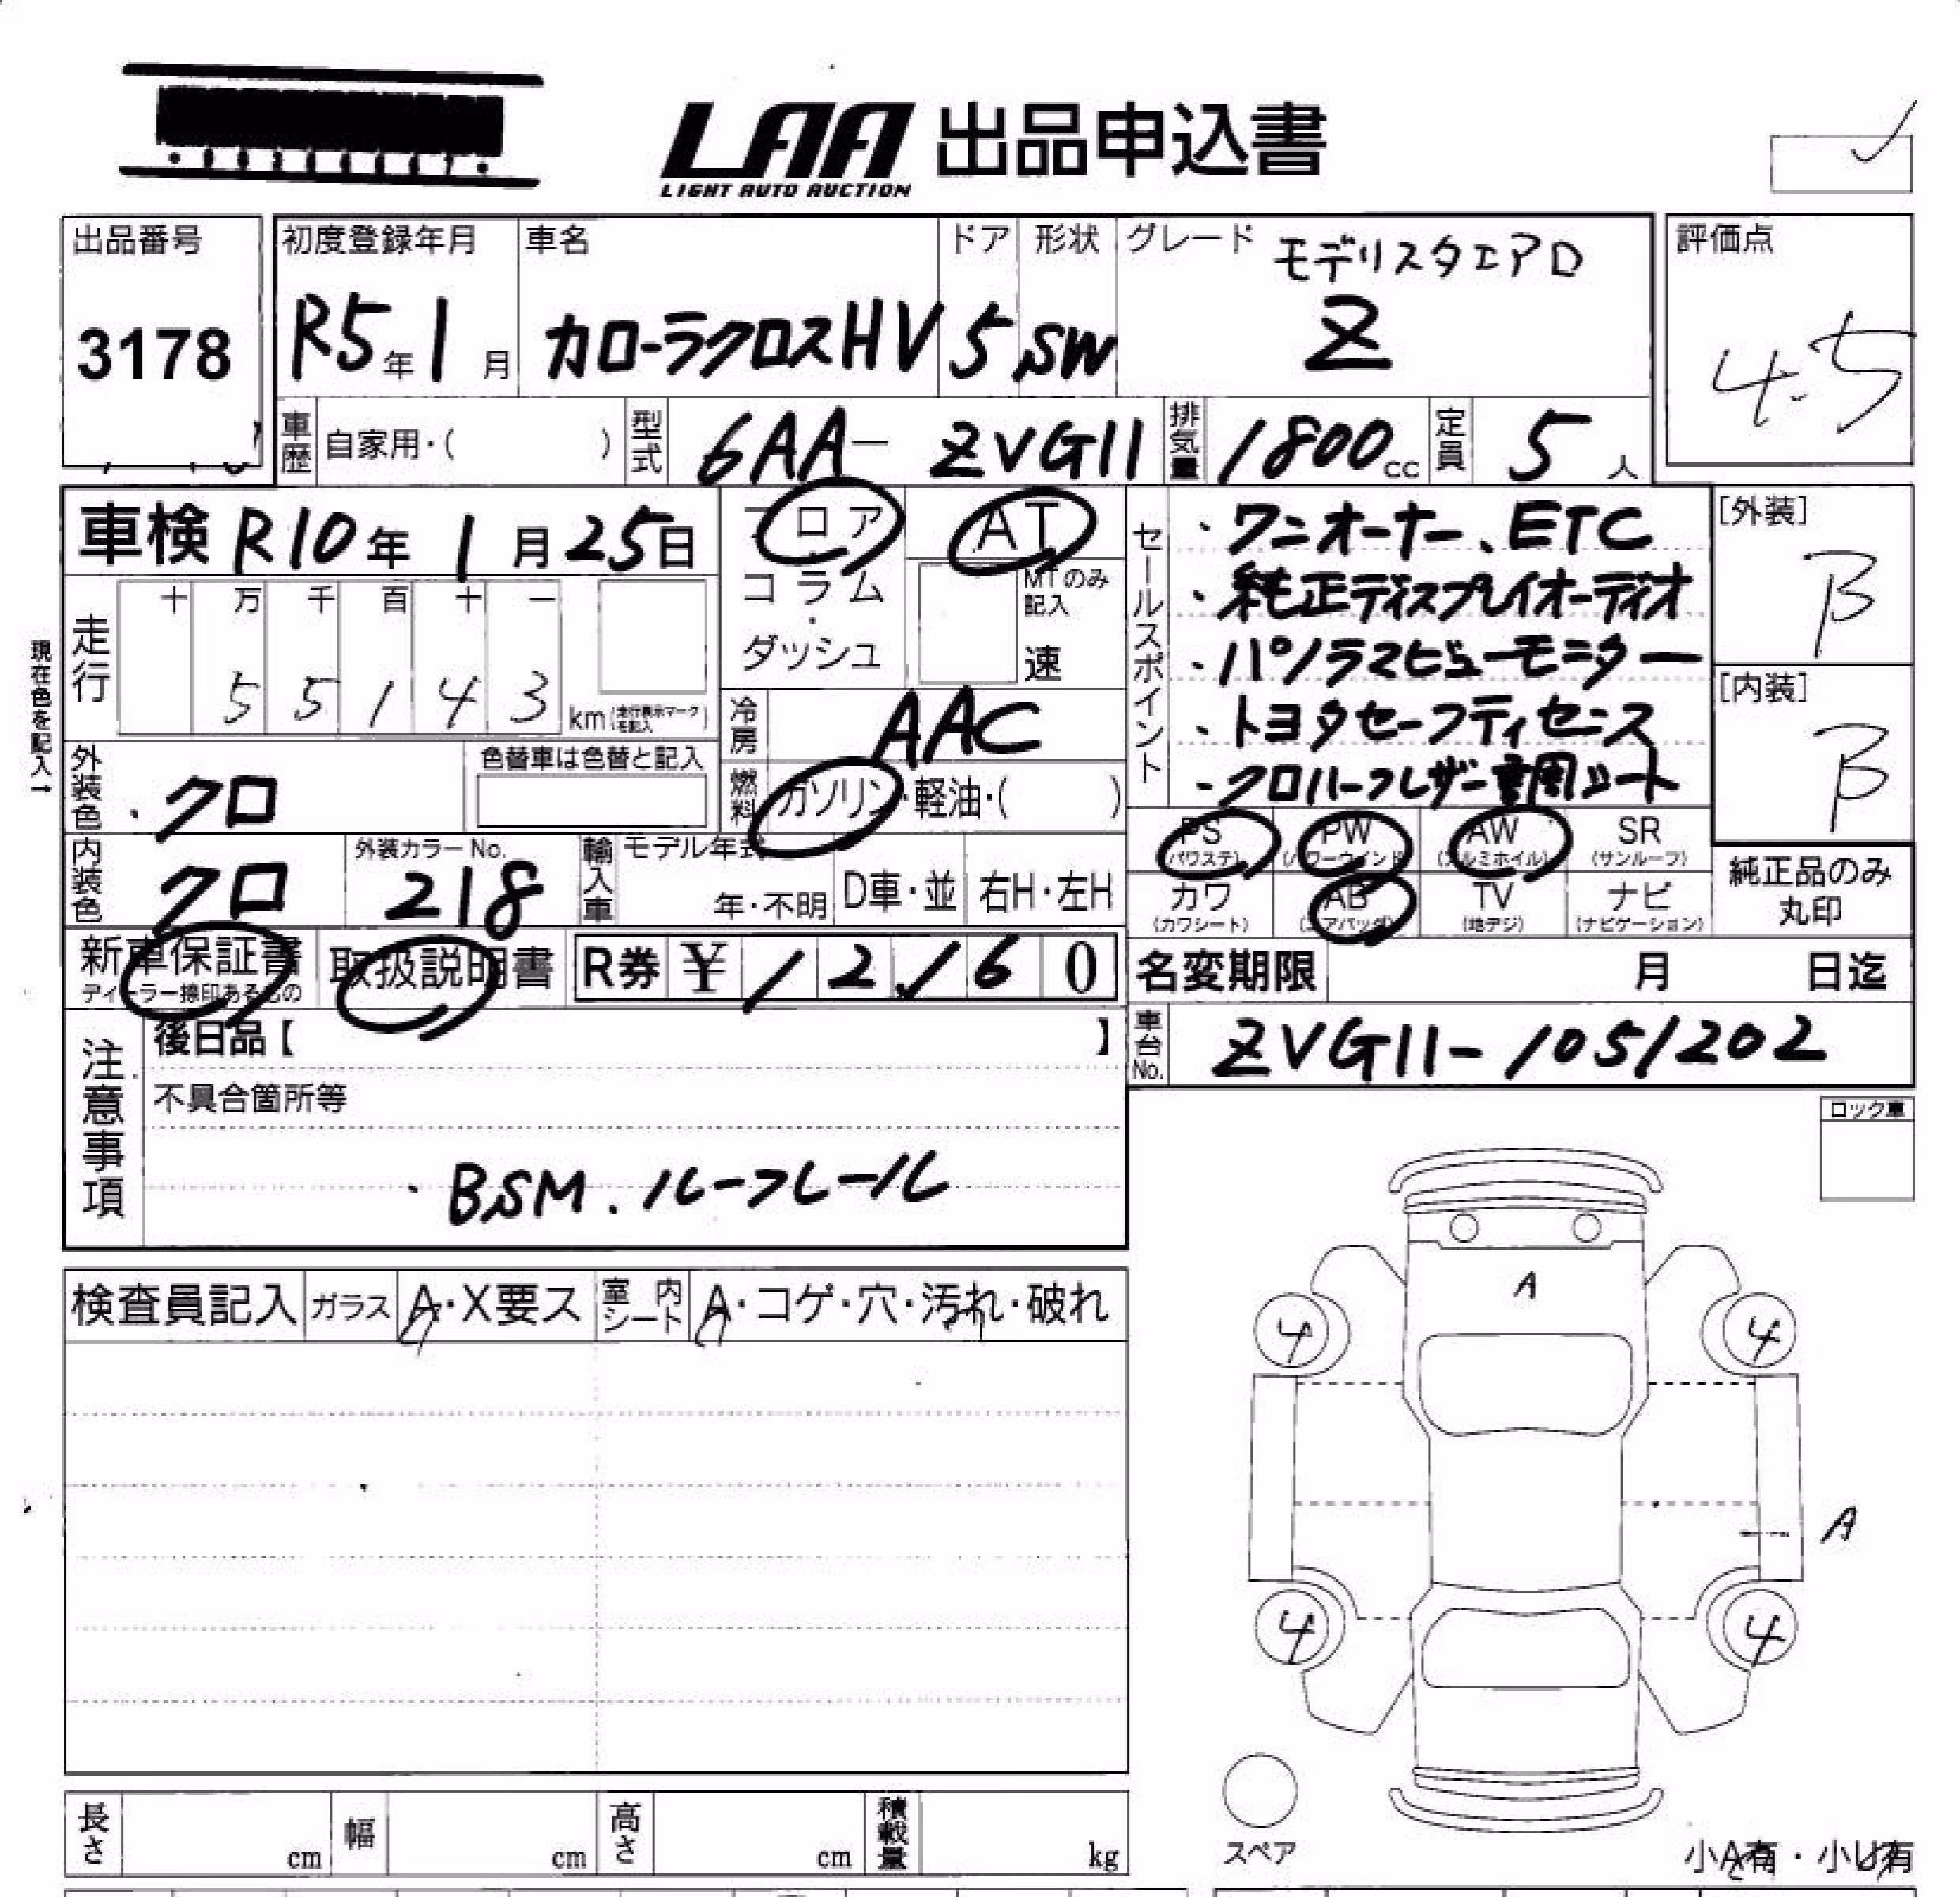 LAA 出品申込書
LIGHT AUTO AUCTION
出品番号
3178
初度登録年月
R5年1月
車名
カローラクロスHV
ドア
5
形状
SW
グレード
モデリスタエアロ
Z
評価点
4.5
車歴 自家用・( )
型式 6AA- ZVG11
排気量 1800cc
定員 5人
車検 R10年1月25日
フロア・コラム・ダッシュ
AT
MTのみ記入
速
セールスポイント
・ワンオーナー、ETC
・純正ディスプレイオーディオ
・パノラマビューモニター
・トヨタセーフティセンス
・クロハーフレザー 調シート
[外装]
B
[内装]
B
現在色を記入→
走行
十 万 千 百 十 一
5 5 1 4 3 km (走行表示マークを記入)
冷房 AAC
外装色 ・クロ
色替車は色替と記入
燃料 ガソリン・軽油・( )
内装色 クロ
外装カラーNo.
218
輸入車
モデル年式
年・不明
D車・並
右H・左H
PS (パワステ)
PW (パワーウインド)
AW (アルミホイル)
SR (サンルーフ)
カワ (カワシート)
AB (エアバッグ)
TV (地デジ)
ナビ (ナビゲーション)
純正品のみ丸印
新車保証書
ディーラー捺印あるもの
取扱説明書
R券 ¥ 12,160
名変期限 月 日迄
車台No. ZVG11-1051202
注意事項
後日品【 】
不具合箇所等
・BSM.ルーフレール
ロック車
検査員記入
ガラス A・X要ス
室内シート A・コゲ・穴・汚れ・破れ
A
4 4
A
4 4
スペア
小A有・小U有
長さ cm
幅 cm
高さ cm
積載量 kg